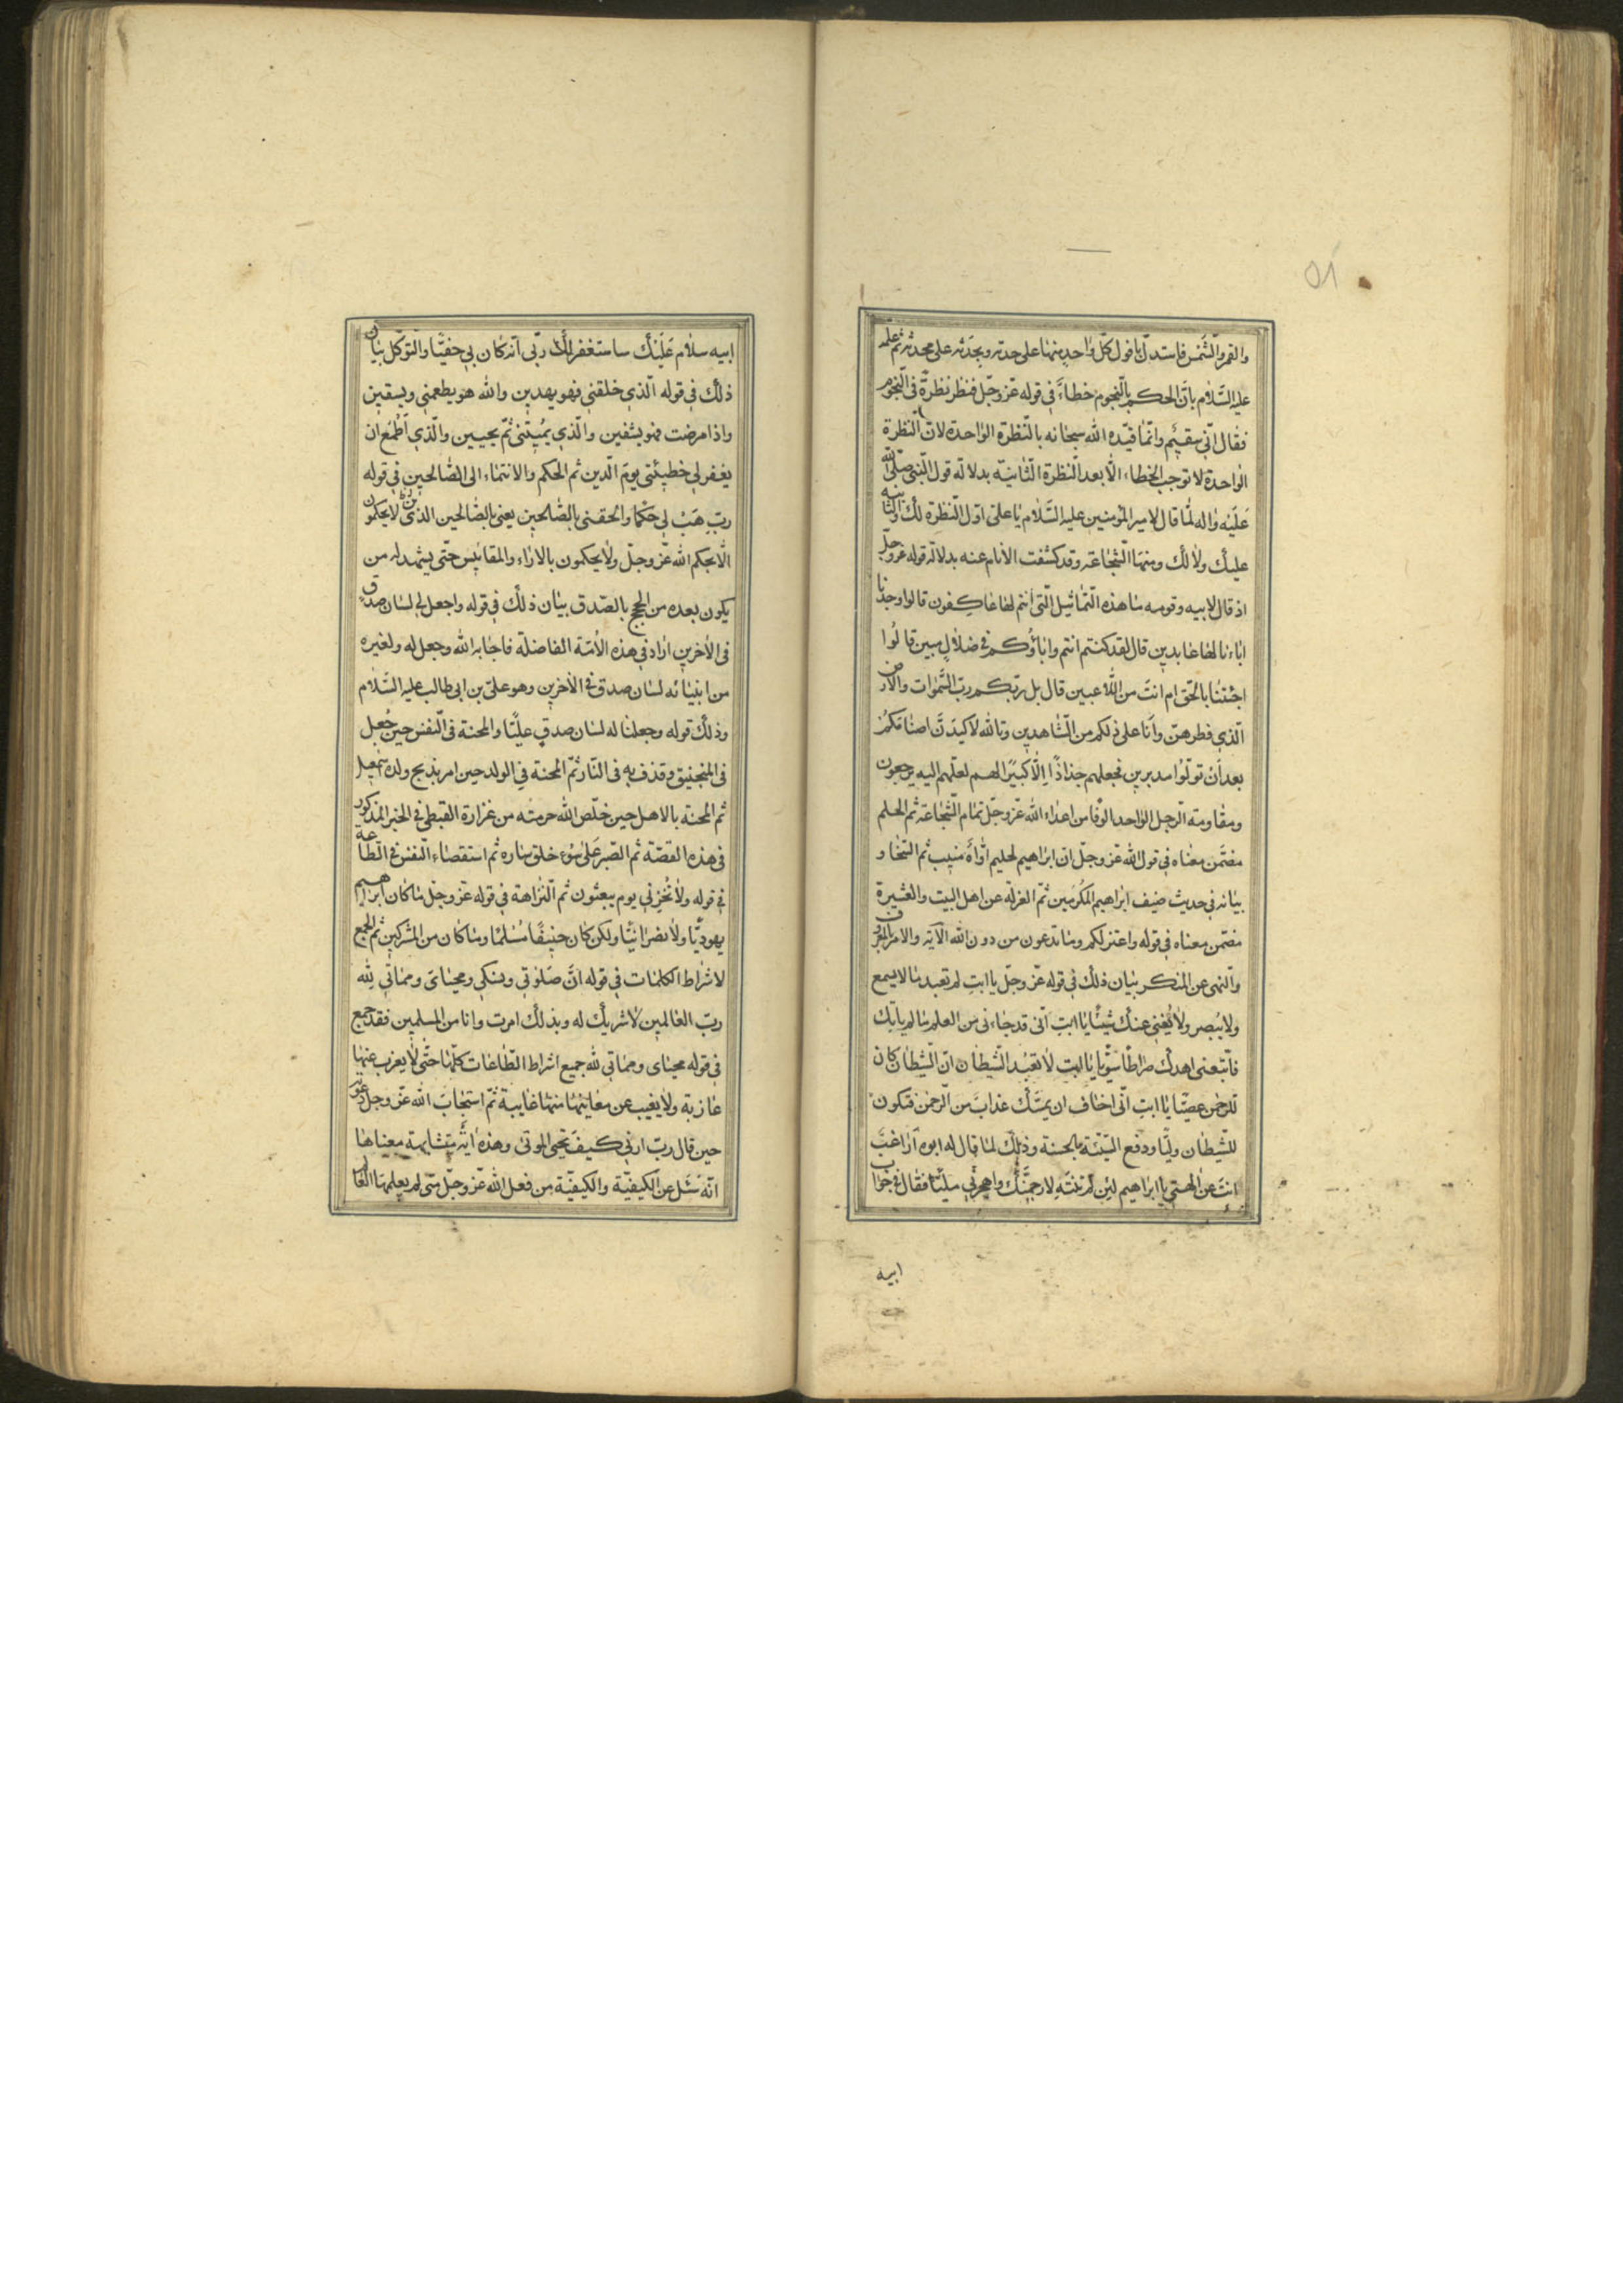 ٥٨
والقمر والشمس فاستدلّ بافول كلّ واحد منها على حدثه وبحدثه على محدثه ثم علمه
عليه السّلام بانّ الحكم بالنّجوم خطاء في قوله عزّ وجلّ فنظر نظرة في النّجوم
فقال انّي سقيم وانّما قيّده الله سبحانه بالنّظرة الواحدة لانّ النّظرة
الواحدة لا توجب الخطاء الّا بعد النّظرة الثّانيّة بدلالة قول النّبي صلّى الله
عليه واله لمّا قال لامير المؤمنين عليه السّلام يا علي اوّل النّظرة لك والثانية
عليك ولا لك ومنها الشّجاعة وقد كشفت الانام عنه بدلالة قوله عزّ وجلّ
اذ قال لابيه وقومه ما هذه التّماثيل الّتي انتم لها عاكفون قالوا وجدنا
اباءنا لها عابدين قال لقد كنتم انتم واباؤكم في ضلال مبين قالوا
اجئتنا بالحق ام انت من اللّاعبين قال بل ربّكم ربّ السّموات والارض
الّذي فطرهنّ وانا على ذلكم من الشّاهدين وتالله لاكيدنّ اصنامكم
بعد أن تولّوا مدبرين فجعلهم جذاذًا إلّا كبيرًا لهم لعلّهم اليه يرجعون
ومقاومة الرّجل الواحد الوفا من اعداء الله عزّ وجلّ تمام الشّجاعة ثم الحلم
مضمّن معناه في قول الله عزّ وجلّ انّ ابراهيم لحليم اوّاه منيب ثم السّخاو
بيانه في حديث ضيف ابراهيم المكرمين ثمّ العزلة عن اهل البيت والعشيرة
مضمّن معناه في قوله واعتزلكم وما تدعون من دون الله الآية والامر بالمعروف
والنّهى عن المنكر بيان ذلك في قوله عزّ وجلّ يا ابت لم تعبد ما لا يسمع
ولا يبصر ولا يغني عنك شيئًا يا ابت انّي قد جاءني من العلم ما لم ياتك
فاتّبعني اهدك صراطًا سويّا يا ابت لا تعبد الشّيطان انّ الشّيطان كان
للرّحمن عصيّا يا ابت انّي اخاف ان يمسّك عذاب من الرّحمن فتكون
للشّيطان وليّا ودفع السّيّئة بالحسنة وذلك لمّا قال له ابوه اراغب
انت عن الهتي يا ابراهيم لئن لم تنته لارجمنّك واهجرني مليّا فقال في جواب
ابيه
ابيه سلام عليك ساستغفر لك ربّي انّه كان بي حفيّا والتوكّل بيان
ذلك في قوله الّذي خلقني فهو يهدين والله هو يطعمني ويسقين
واذا مرضت فهو يشفين والّذي يُميتني ثمّ يحيين والّذي أطمع ان
يغفر لي خطيئتي يوم الّدين ثم الحكم والانتماء الى الصّالحين في قوله
ربّ هب لي حكما والحقني بالصّالحين يعني بالصّالحين الذين لا يحكمون
الّا بحكم الله عزّ وجلّ ولا يحكمون بالاراء والمقائيس حتّى يشهد له من
يكون بعده من الحجج بالصّدق بيان ذلك في قوله واجعل لي لسان صدق
في الاخرين اراد في هذه الامّة الفاضلة فاجابه الله وجعل له ولغيره
من انبيائه لسان صدق في الاخرين وهو علي بن ابي طالب عليه السّلام
وذلك قوله وجعلنا له لسان صدقٍ عليًّا والمحنة في النّفس حين جُعل
في المنجنيق وقذف به في النّار ثمّ المحنة في الولد حين امر بذبح ولده اسمعيل
ثم المحنة بالاهل حين خلّص الله حرمته من عزارة القبطي في الخبر المذكور
في هذه القصّة ثم الصّبر على سوء خلق ساره ثم استقصاء النّفس في الطّاعة
في قوله ولا تُخزني يوم يبعثون ثم النّزاهة في قوله عزّ وجلّ ما كان ابراهيم
يهوديّا ولا نصرانيّا ولكن كان حنيفًا مُسلمًا وما كان من المشركين ثم الجمع
لاشراط الكلمات في قوله انّ صلوتي ونسكي ومحياي ومماتي لله
ربّ العالمين لا شريك له وبذلك امرت وانا من المسلمين فقد جمع
في قوله محياى ومماتي لله جميع اشراط الطّاعات كلّها حتّى لا يعزب عنها
عازبة ولا يغيب عن معانيها منها غايبة ثمّ استجاب الله عزّ وجل دعوته
حين قال ربّ ارني كيف تحيى الموتى وهذه اية متشابهة معناها
انّه سئل عن الكيفيّة والكيفيّة من فعل الله عزّ وجلّ متى لم يعلمها العالم